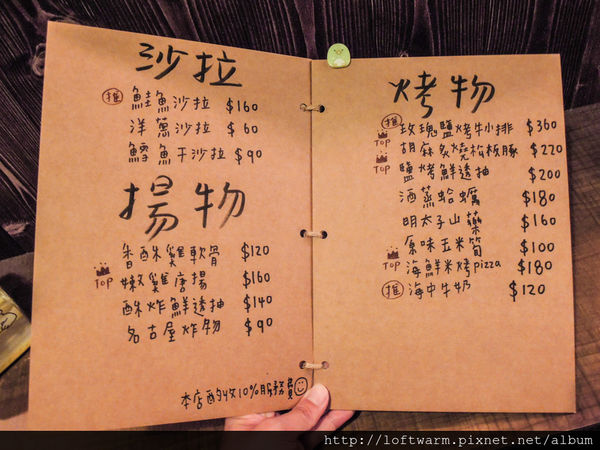 沙拉
推 鮭魚沙拉 $160
洋蔥沙拉 $60
鱈魚干沙拉 $90
揚物
香酥雞軟骨 $120
TOP 嫩雞唐揚 $160
酥炸鮮透抽 $140
名古屋炸物 $90
本店酌收10%服務費
烤物
推 玫瑰鹽烤牛小排 $360
TOP 胡麻炙燒松板豚 $220
TOP 鹽烤鮮透抽 $200
酒蒸蛤蠣 $180
明太子山藥 $160
原味玉米筍 $100
TOP 海鮮米烤pizza $180
推 海中牛奶 $120
http://loftwarm.pixnet.net/album